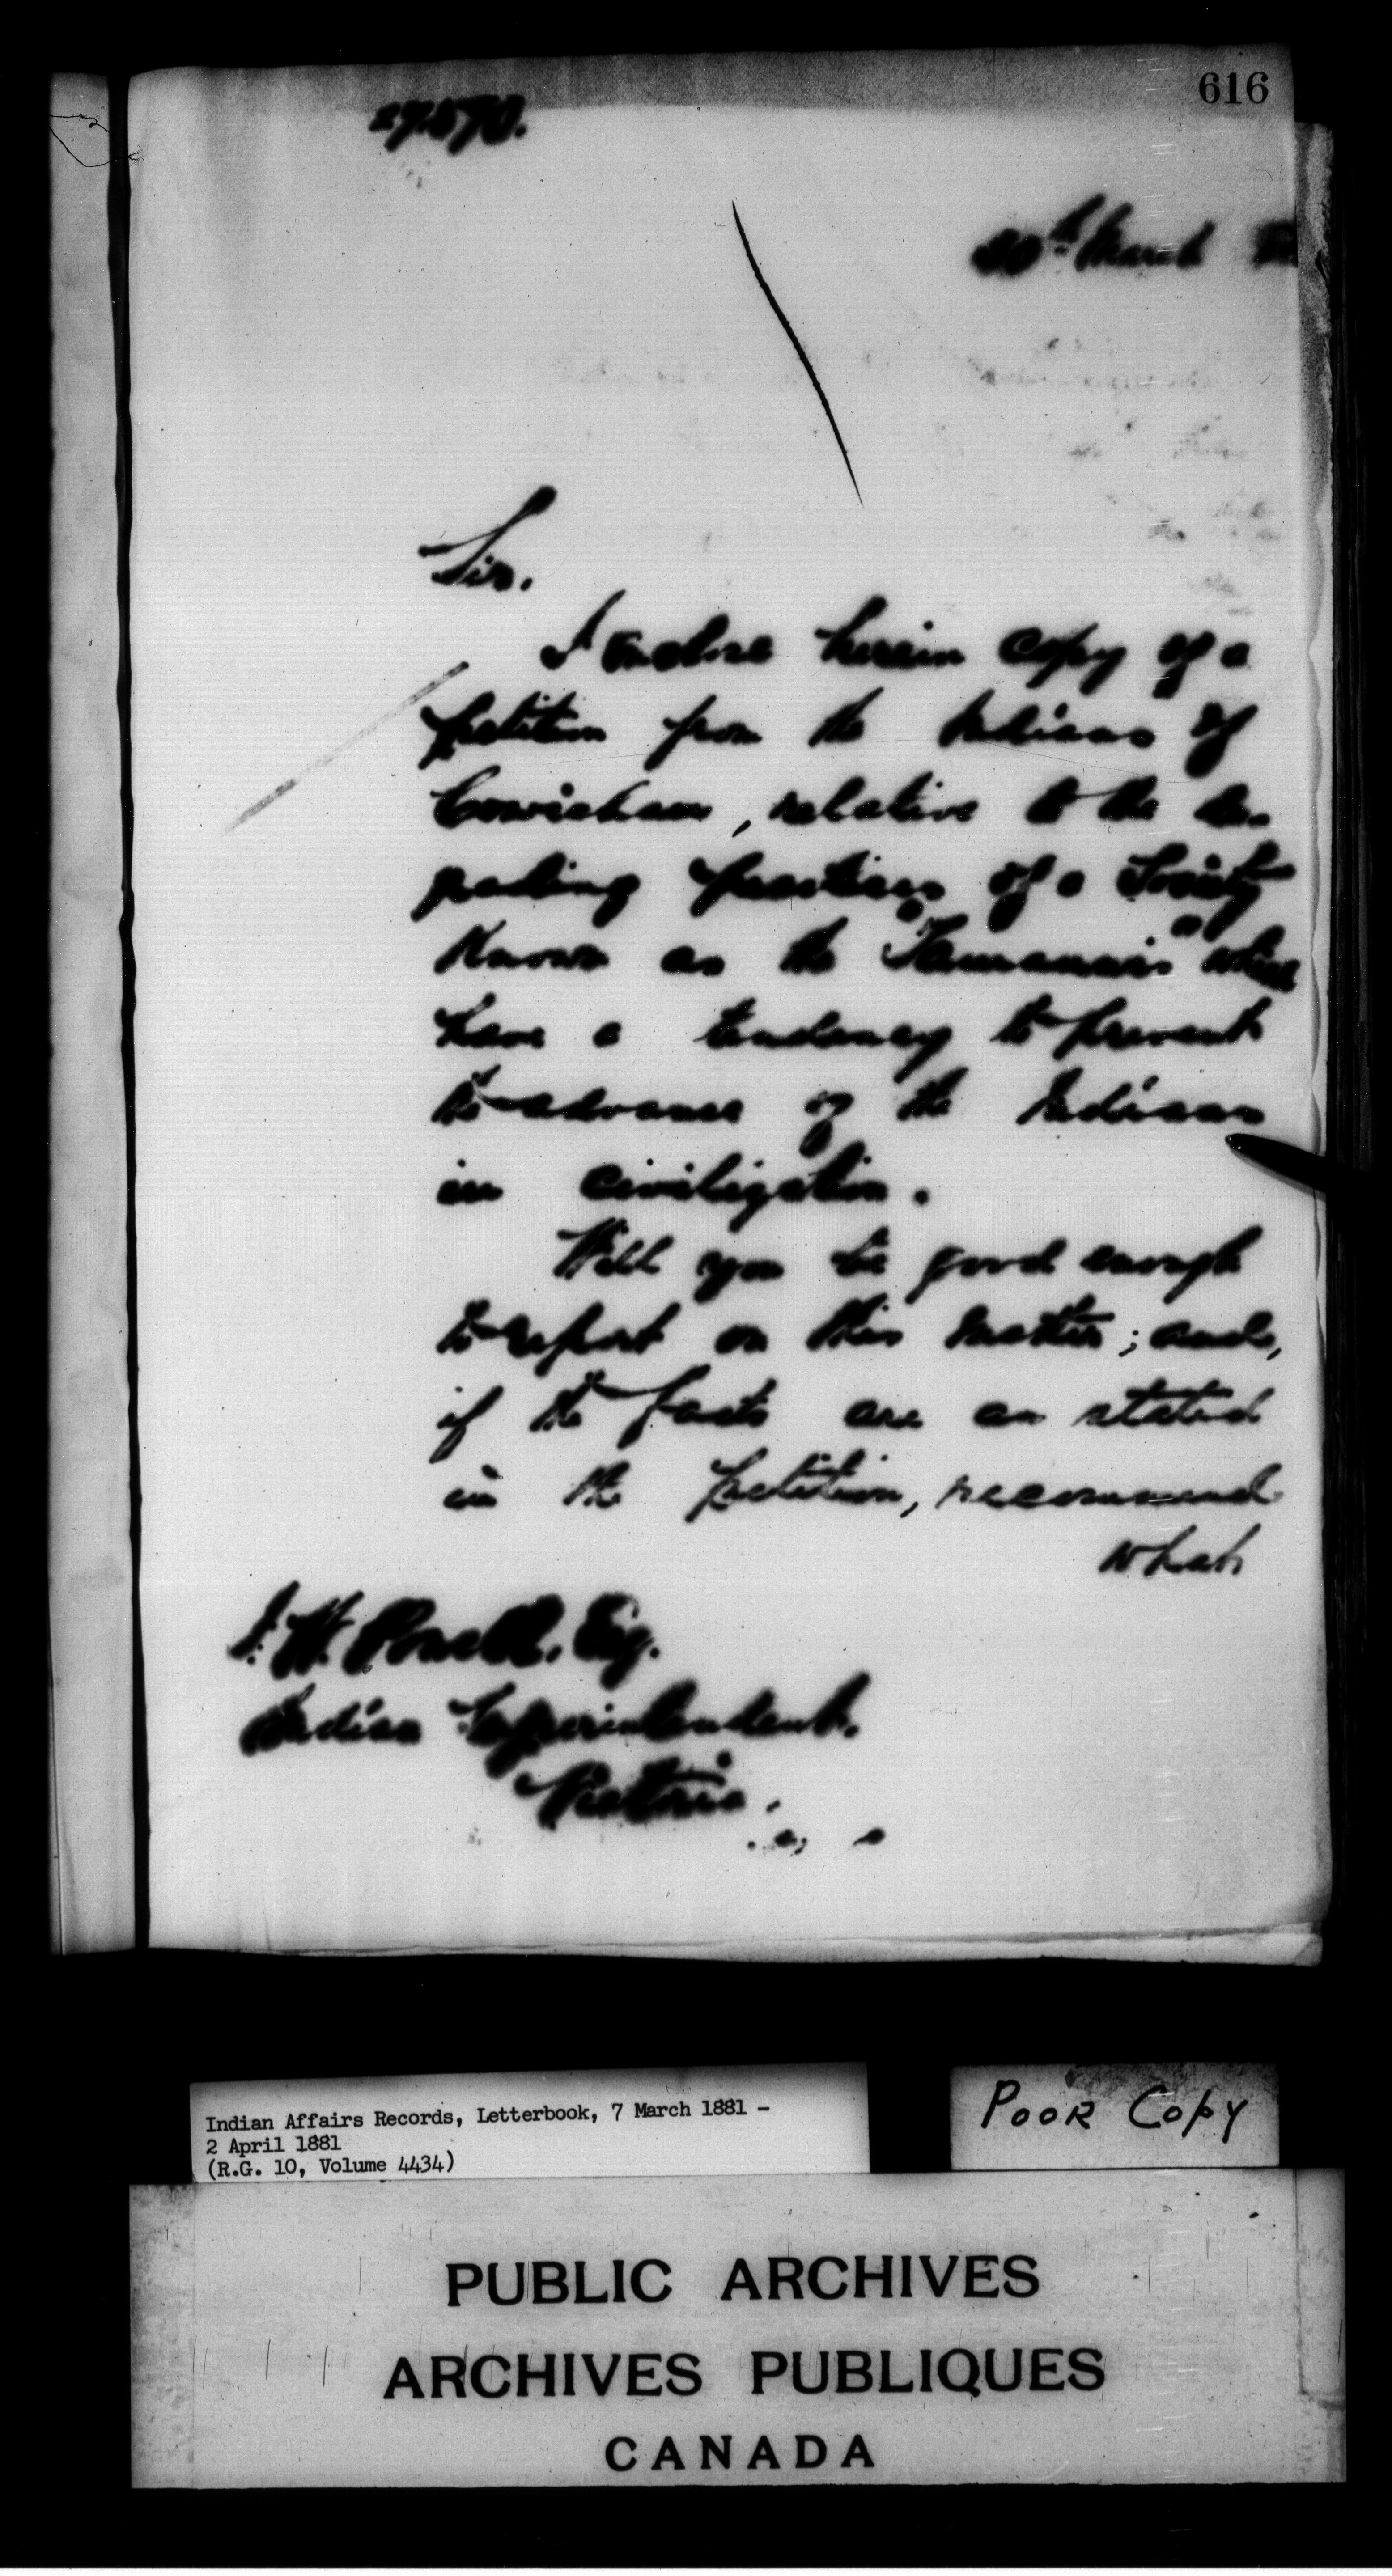 616
27.570.
30th March
Sir.
I enclose herein copy of a
petition from the Indians of
Cowichan, relative to the de-
grading practices of a Society
known as the "Tamanawis" which
have a tendency to prevent
the advance of the Indians
in civilization.
Will you be good enough
to report on this matter; and,
if the facts are as stated
in the petition, recommend
what
I. W. Powell, Esq.
Indian Superintendent.
Victoria.
Indian Affairs Records, Letterbook, 7 March 1881 -
2 April 1881
(R.G. 10, Volume 4434)
POOR COPY
PUBLIC ARCHIVES
ARCHIVES PUBLIQUES
CANADA